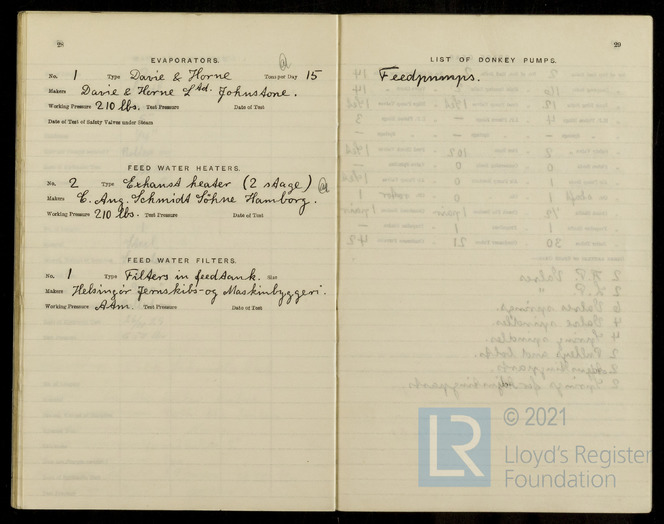 28
EVAPORATORS.
No. 1 Type Davie & Horne Tons per Day 15
Makers Davie & Horne Ltd. Johnstone.
Working Pressure 210 lbs. Test Pressure Date of Test
Date of Test of Safety Valves under Steam
FEED WATER HEATERS.
No. 2 Type Exhaust heater (2 stage)
Makers C. Aug. Schmidt Söhne Hamborg.
Working Pressure 210 lbs. Test Pressure Date of Test
FEED WATER FILTERS.
No. 1 Type Filters in feedtank. Size
Makers Helsingør Jernskibs-og Maskinbyggeri.
Working Pressure Atm. Test Pressure Date of Test
29
LIST OF DONKEY PUMPS.
Feedpumps.
© 2021
LR Lloyd's Register
Foundation